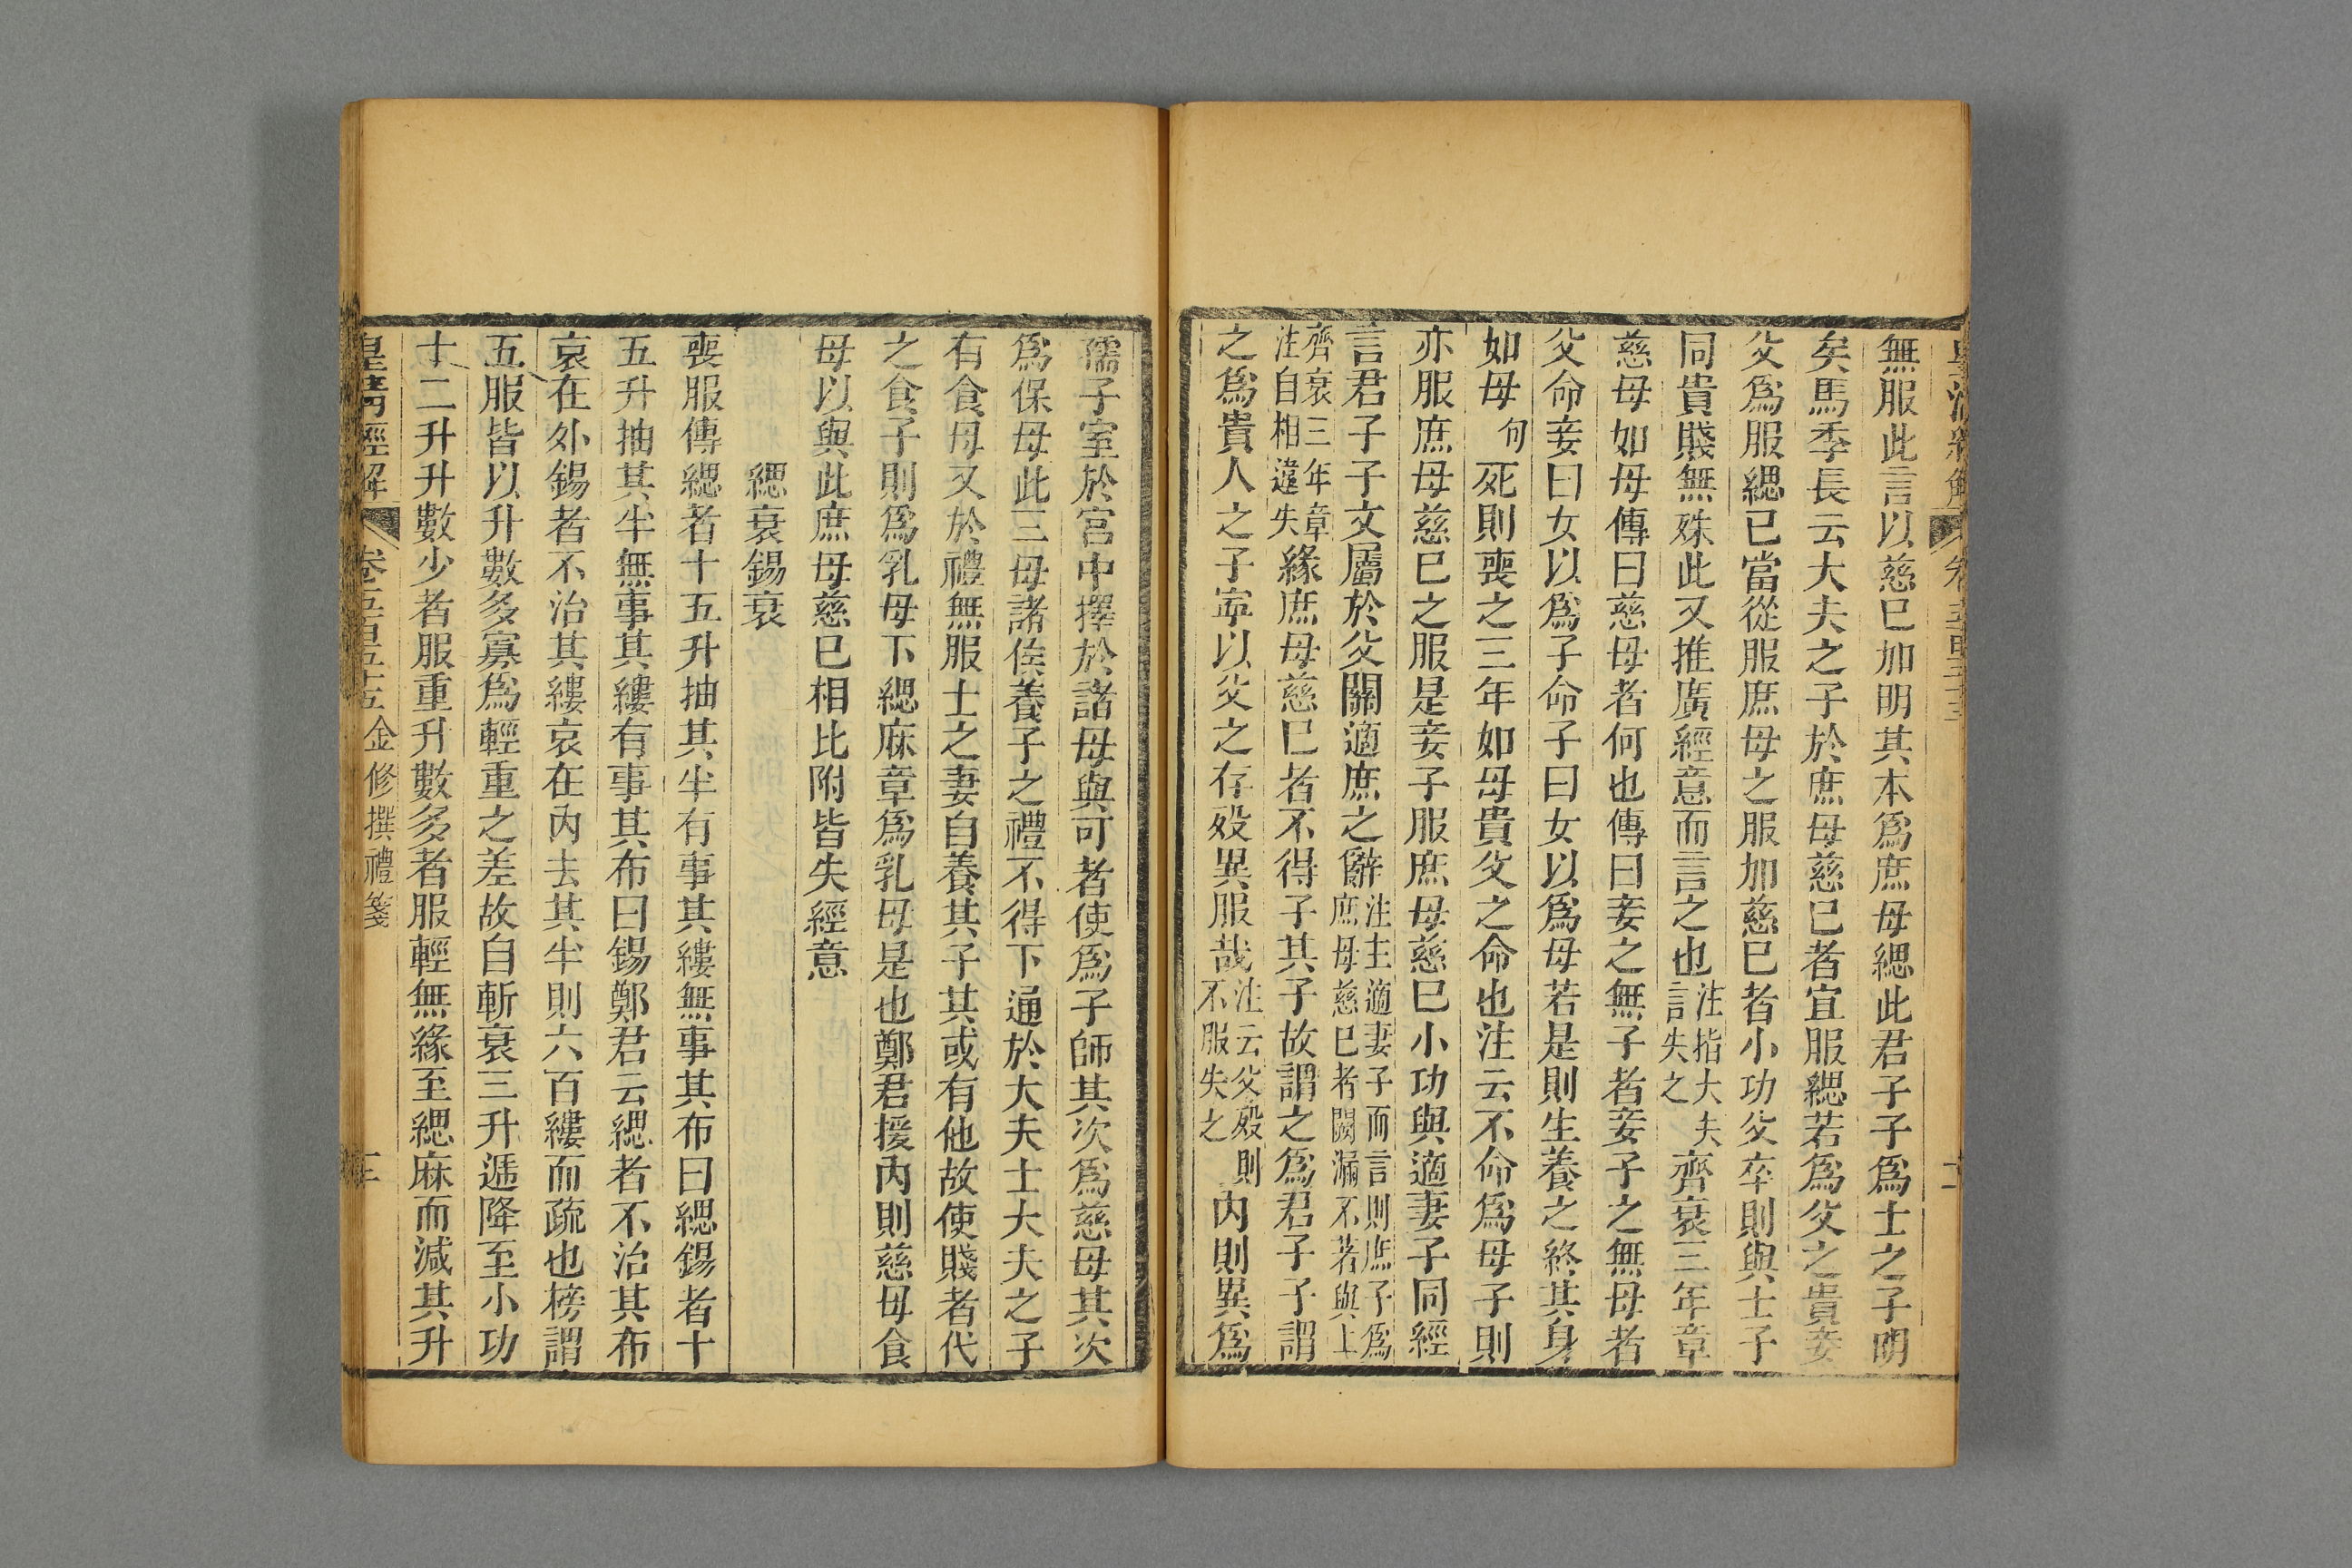 無服此言以慈已加明其本爲庶母緦此君子子爲士之子明
矣馬季長云大夫之子於庶母慈已者宜服緦若爲父之貴妾
父爲服緦已當從服庶母之服加慈已者小功父卒則與士子
同貴賤無殊此又推廣經意而言之也注指大夫言失之齊衰三年章
慈母如母傳曰慈母者何也傳曰妾之無子者妾子之無母者
父命妾曰女以爲子命子曰女以爲母若是則生養之終其身
如母句死則喪之三年如母貴父之命也注云不命爲母子則
亦服庶母慈已之服是妾子服庶母慈已小功與適妻子同經
言君子子文屬於父關適庶之辭注主適妻子而言則庶子爲庶母慈已者闕漏不若與上
齊衰三年章注自相違失緣庶母慈已者不得子其子故謂之爲君子子謂
之爲貴人之子寧以父之存歿異服哉注云父歿則不服失之內則異爲
孺子室於宮中擇於諸母與可者使爲子師其次爲慈母其次
爲保母此三母諸侯養子之禮不得下通於大夫士大夫之子
有食母又於禮無服士之妻自養其子其或有他故使賤者代
之食子則爲乳母下緦麻章爲乳母是也鄭君援內則慈母食
母以與此庶母慈已相比附皆失經意
緦衰錫衰
喪服傳緦者十五升抽其半有事其縷無事其布曰緦錫者十
五升抽其半無事其縷有事其布曰錫鄭君云緦者不治其布
哀在外錫者不治其縷哀在內去其半則六百縷而疏也榜謂
五服皆以升數多寡爲輕重之差故自斬衰三升遞降至小功
十二升升數少者服重升數多者服輕無緣至緦麻而減其升
皇清經解
卷五百五十五
金修撰禮箋